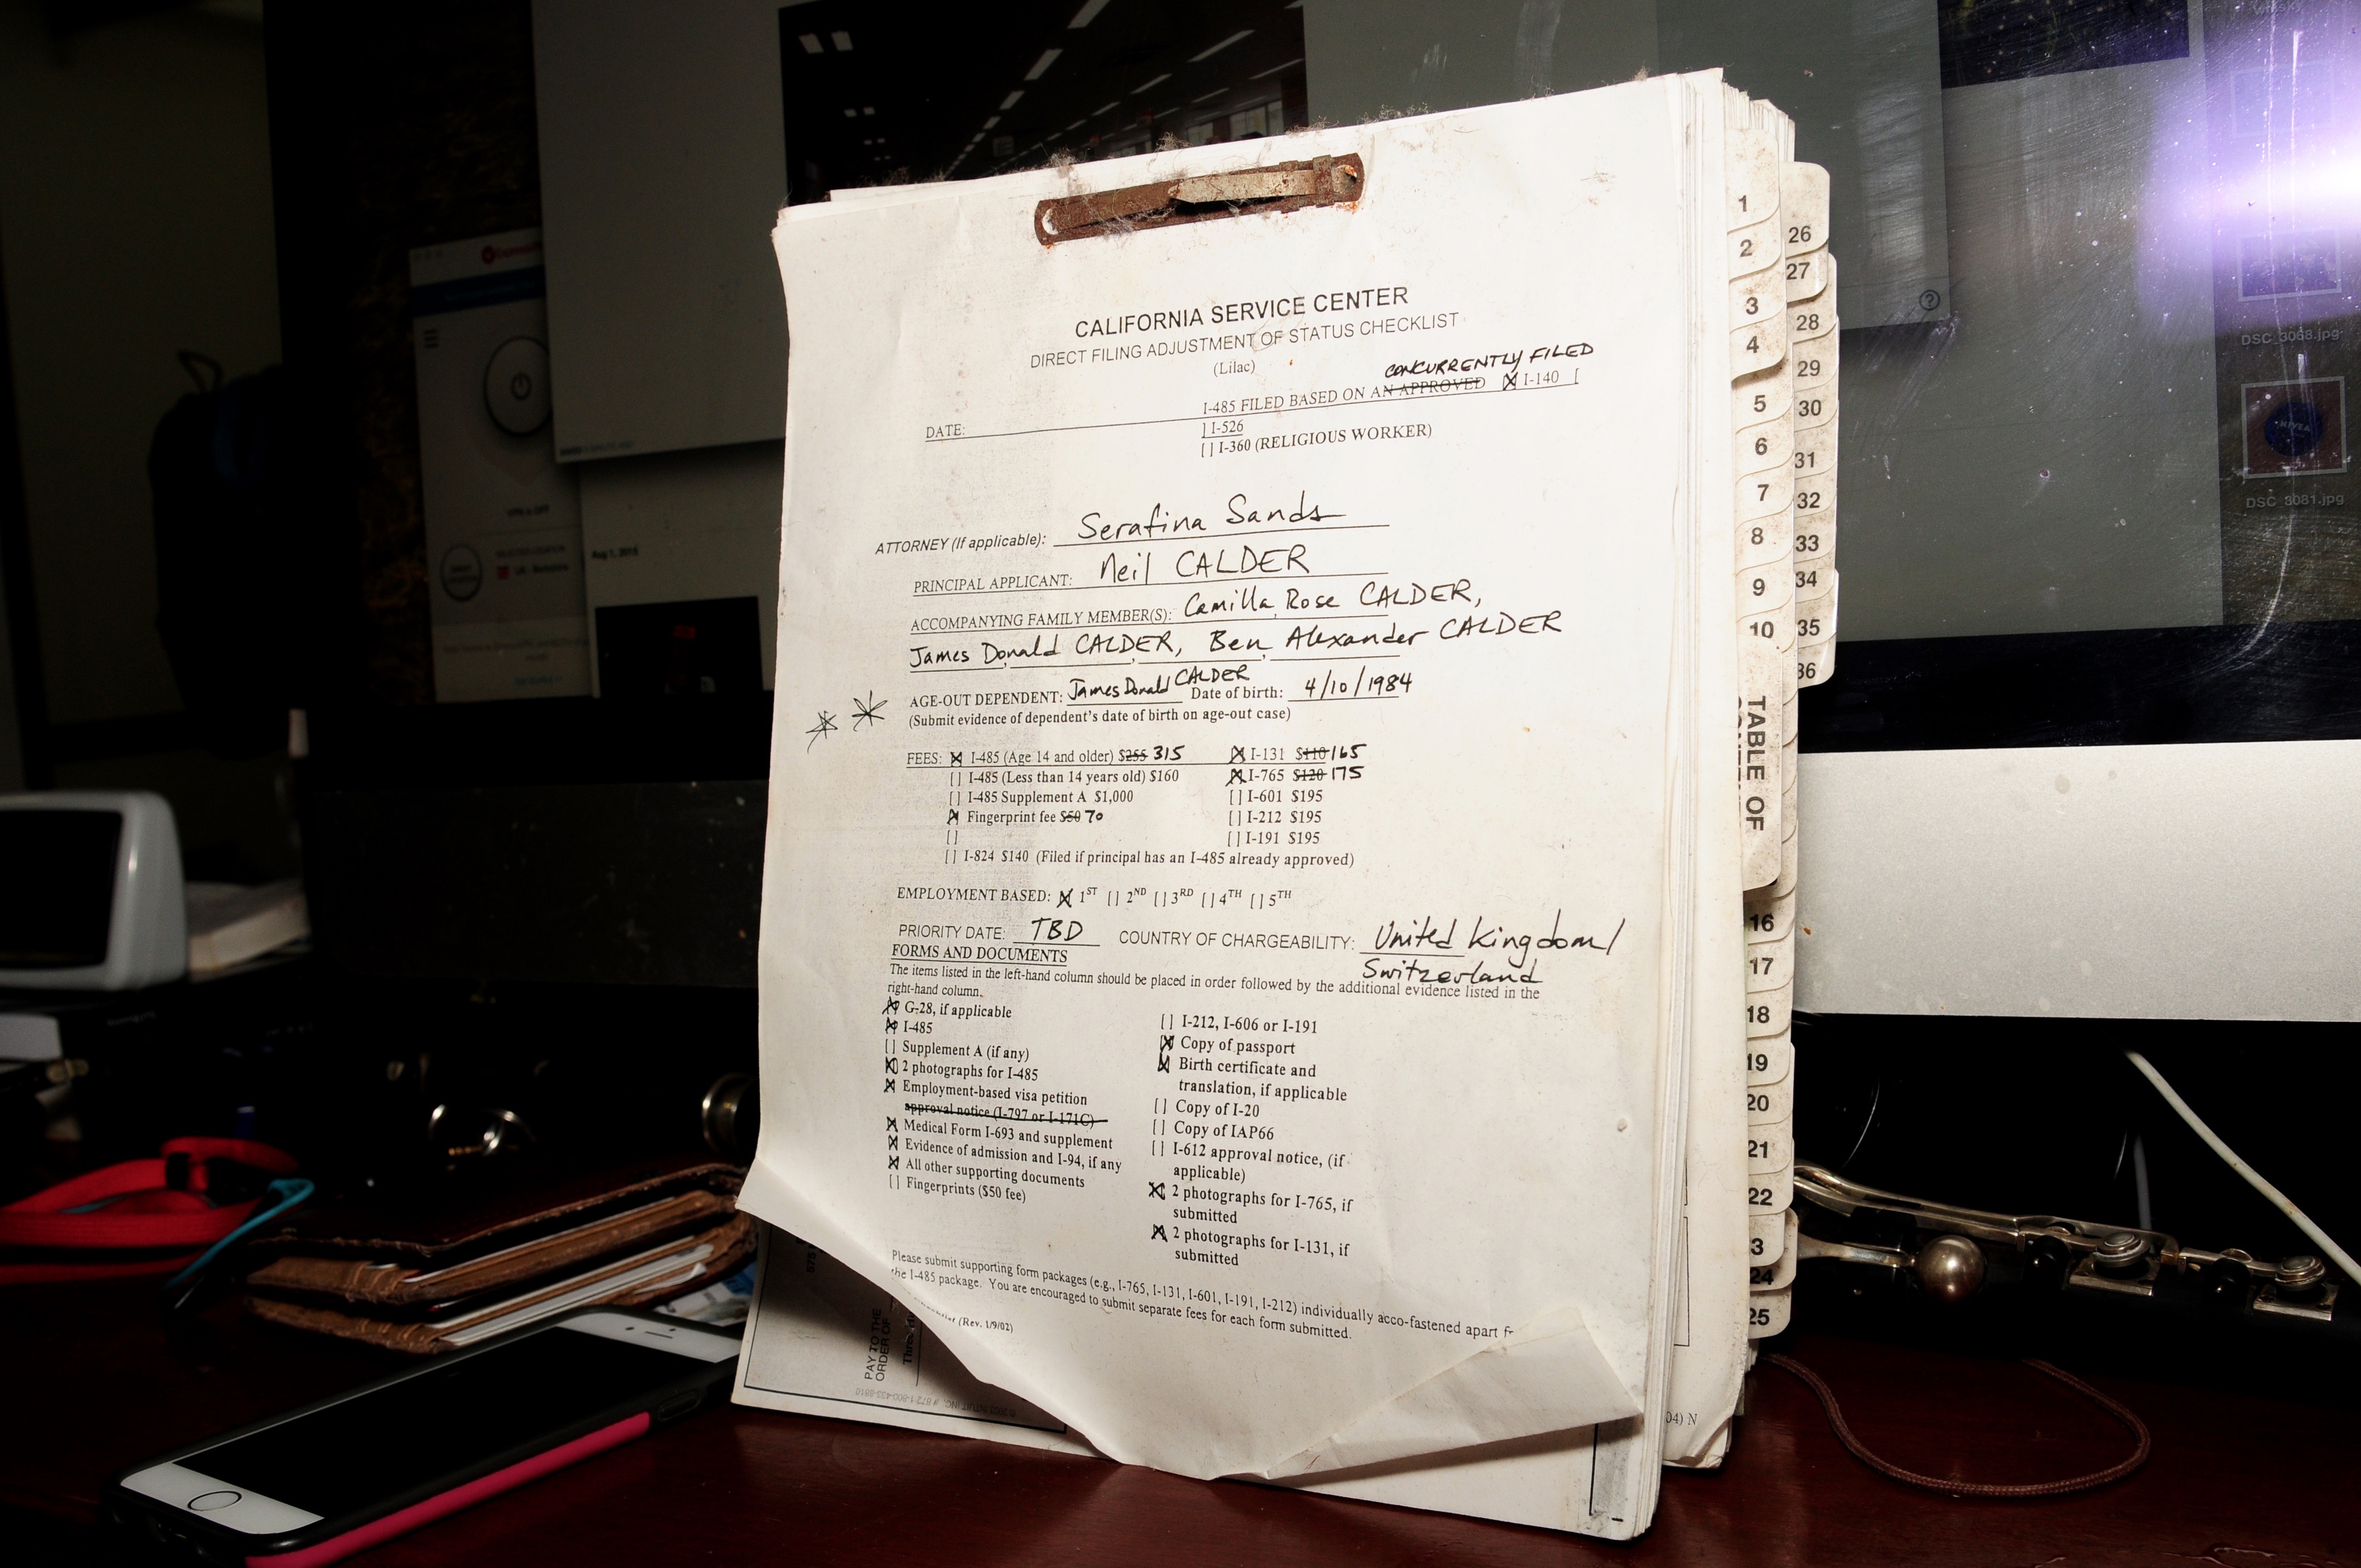 CALIFORNIA SERVICE CENTER
DIRECT FILING ADJUSTMENT OF STATUS CHECKLIST
(Lilac)
CONCURRENTLY FILED
DATE: I-485 FILED BASED ON AN APPROVED [X] I-140 [
] I-526
[ ] I-360 (RELIGIOUS WORKER)
ATTORNEY (If applicable): Serafina Sands
PRINCIPAL APPLICANT: Neil CALDER
ACCOMPANYING FAMILY MEMBER(S): Camilla Rose CALDER,
James Donald CALDER, Ben Alexander CALDER
AGE-OUT DEPENDENT: James Donald CALDER Date of birth: 4/10/1984
(Submit evidence of dependent's date of birth on age-out case)
FEES: [X] I-485 (Age 14 and older) $255 315 [X] I-131 $110 165
[ ] I-485 (Less than 14 years old) $160 [X] I-765 $120 175
[ ] I-485 Supplement A $1,000 [ ] I-601 $195
[X] Fingerprint fee $50 70 [ ] I-212 $195
[ ] [ ] I-191 $195
[ ] I-824 $140 (Filed if principal has an I-485 already approved)
EMPLOYMENT BASED: [X] 1ST [ ] 2ND [ ] 3RD [ ] 4TH [ ] 5TH
PRIORITY DATE: TBD COUNTRY OF CHARGEABILITY: United Kingdom/
Switzerland
FORMS AND DOCUMENTS
The items listed in the left-hand column should be placed in order followed by the additional evidence listed in the
right-hand column.
[X] G-28, if applicable
[X] I-485
[ ] Supplement A (if any)
[X] 2 photographs for I-485
[X] Employment-based visa petition
approval notice (I-797 or I-171C)
[X] Medical Form I-693 and supplement
[X] Evidence of admission and I-94, if any
[X] All other supporting documents
[ ] Fingerprints ($50 fee)
[ ] I-212, I-606 or I-191
[X] Copy of passport
[X] Birth certificate and
translation, if applicable
[ ] Copy of I-20
[ ] Copy of IAP66
[ ] I-612 approval notice, (if
applicable)
[X] 2 photographs for I-765, if
submitted
[X] 2 photographs for I-131, if
submitted
Please submit supporting form packages (e.g., I-765, I-131, I-601, I-191, I-212) individually acco-fastened apart
the I-485 package. You are encouraged to submit separate fees for each form submitted.
(Rev. 1/9/02)
PAY TO THE
ORDER OF
04) N
1
2
3
4
5
6
7
8
9
10
TABLE OF
16
17
18
19
20
21
22
3
24
25
26
27
28
29
30
31
32
33
34
35
36
DSC_3068.jpg
NIVEA
DSC_3081.jpg
Aug 1, 2015